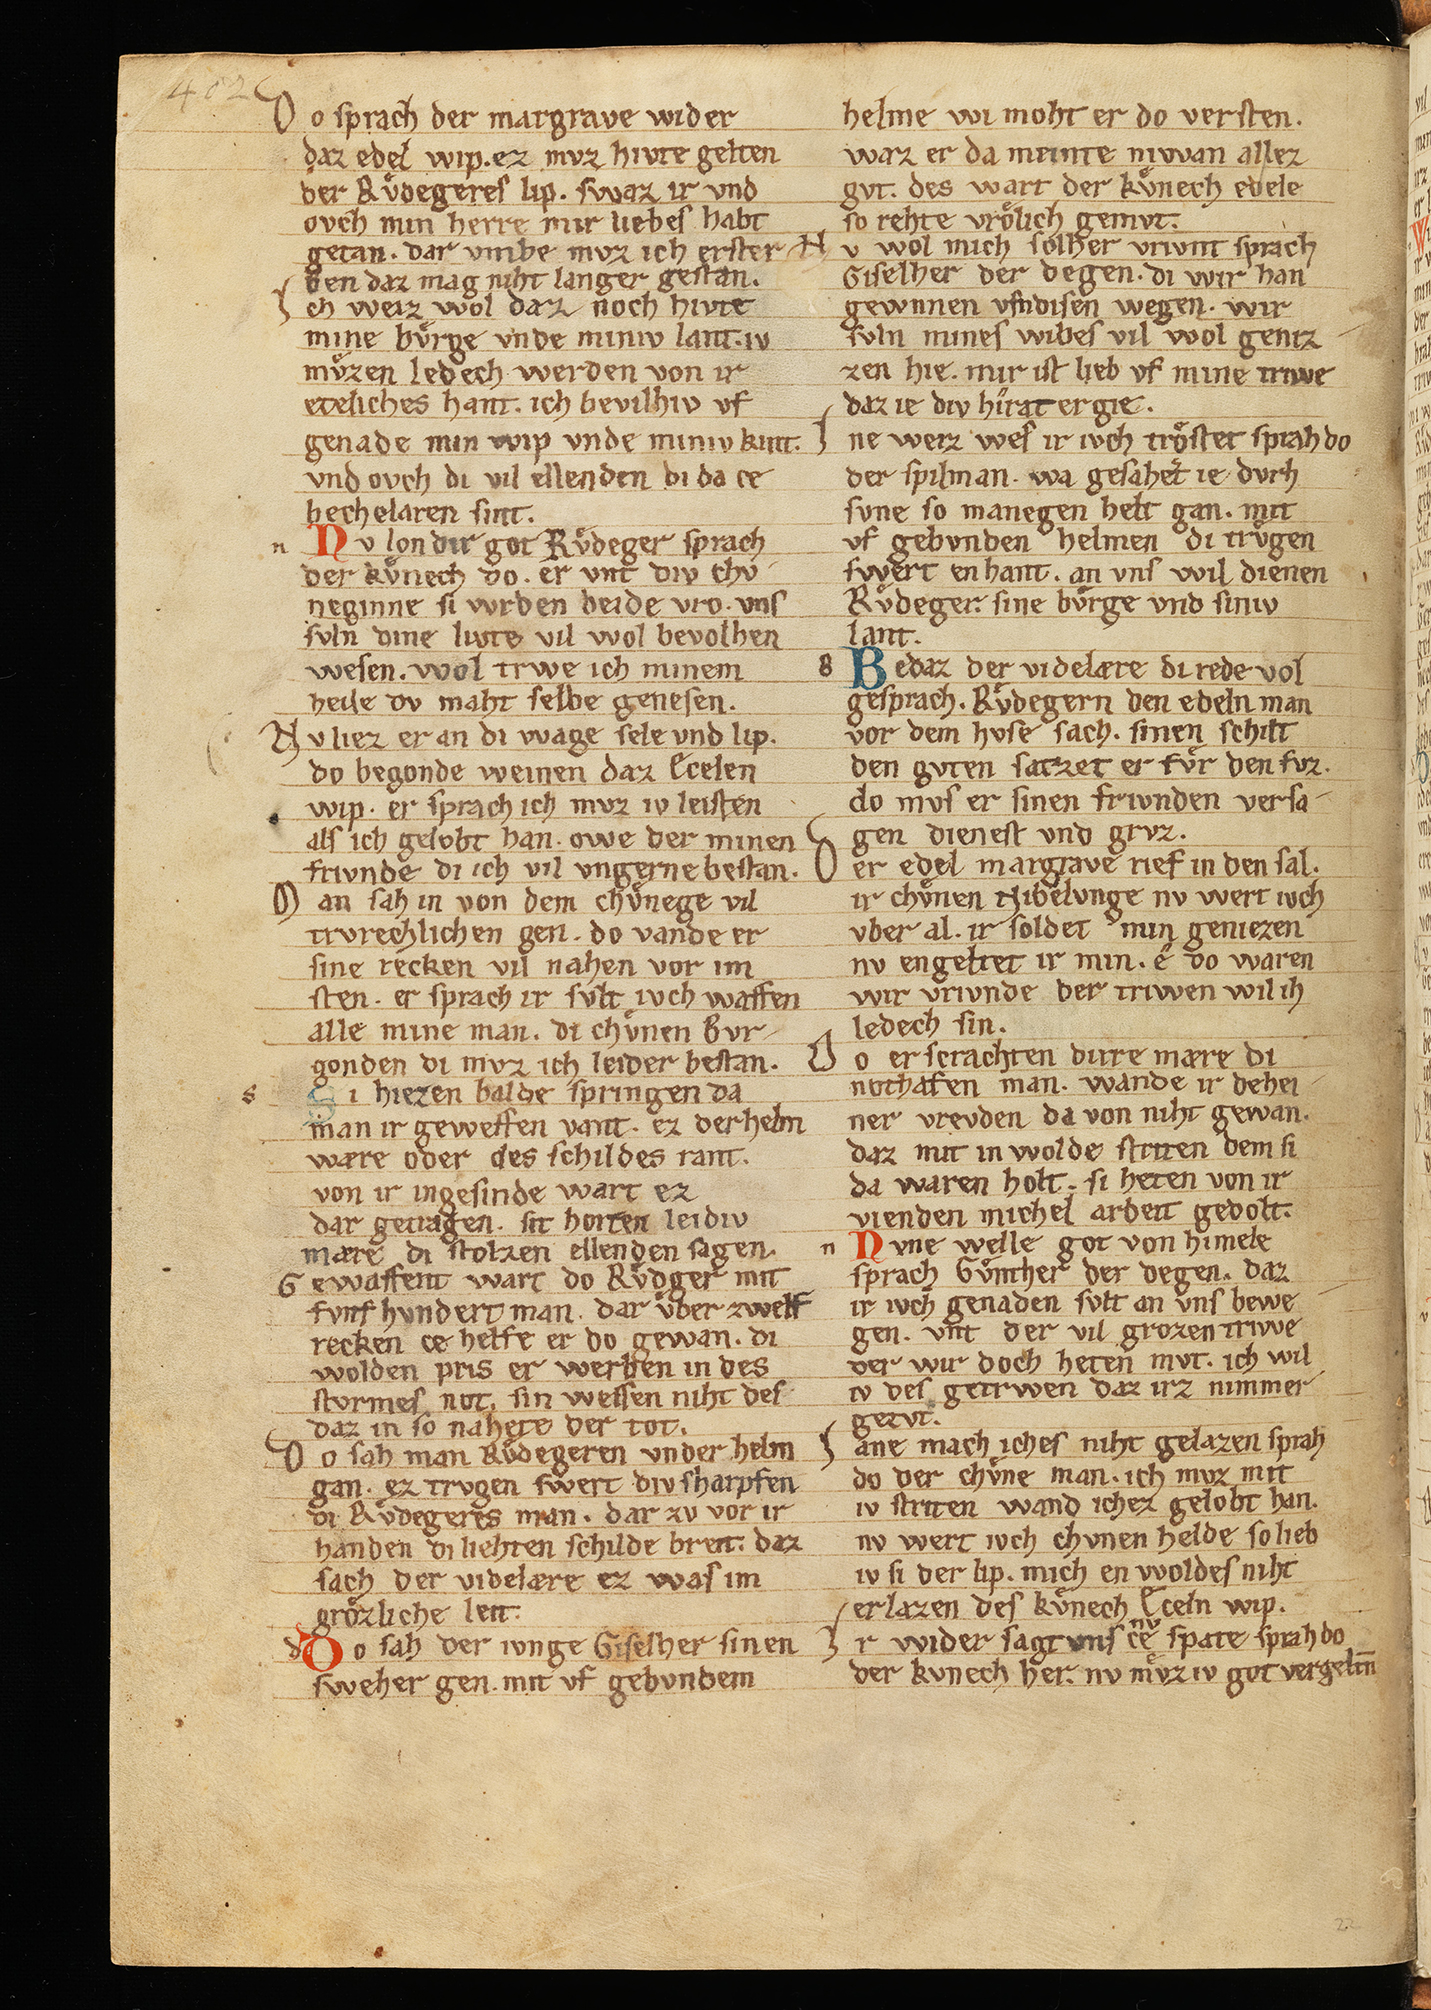 402
Do sprach der margrave wider
daz edel wip. ez mvz hivte gelten
der Rvͦdegeres lip. swaz ir vnd
ovch min herre mir liebes habt
getan. dar vmbe mvz ich erster
ben daz mag niht langer gestan.
Ich weiz wol daz noch hivte
mine bvͤrge vnde miniv lant. iv
mvͤzen ledech werden von ir
eteliches hant. ich bevilhiv vf
genade min wip vnde miniv kint.
vnd ovch di vil ellenden di da ce
bechelaren sint.
n Nv lon dir got Rvͤdeger sprach
der kvͤnech do. er vnt div chv
neginne si wrden beide vro. vns
svln dine livte vil wol bevolhen
wesen. wol trwe ich minem
heile dv maht selbe genesen.
Nv liez er an di wage sele vnd lip.
do begonde weinen daz Ecelen
wip. er sprach ich mvz iv leisten
als ich gelobt han. owe der minen
frivnde di ich vil vngerne bestan.
Man sah in von dem chvͤnege vil
trvrechlichen gen. do vande er
sine recken vil nahen vor im
sten. er sprach ir svlt ivch waffen
alle mine man. di chvͤnen Bvr
gonden di mvz ich leider bestan.
s Si hiezen balde springen da
man ir geweffen vant. ez der helm
wære oder des schildes rant.
von ir ingesinde wart ez
dar getragen. sit horten leidiv
mære di stolzen ellenden sagen.
Gewaffent wart do Rvͤdger mit
fvnf hvndert man. dar vͤber zwelf
recken ce helfe er do gewan. di
wolden pris er werben in des
stvrmes not. sin wessen niht des
daz in so nahete der tot.
Do sah man Rvͤdegeren vnder helm
gan. ez trvgen swert div sharpfen
di Rvͤdegeres man. dar zv vor ir
handen di liehten schilde breit. daz
sach der videlære ez was im
grözliche leit.
d Do sah der ivnge Giselher sinen
sweher gen. mit vf gebvndem
helme wi moht er do versten.
waz er da meinte nivvan allez
gvt. des wart der kvͤnech edele
so rehte vrölich gemvt.
Nv wol mich solher vrivnt sprach
Giselher der degen. di wir han
gewnnen vf disen wegen. wir
svln mines wibes vil wol geniz
zen hie. mir ist lieb vf mine triwe
daz ie div hirat ergie.
Ine weiz wes ir ivch tröstet sprah do
der spilman. wa gesahet ie dvrh
svne so manegen helt gan. mit
vf gebvnden helmen di trvͤgen
swert enhant. an vns wil dienen
Rvͤdeger. sine bvͤrge vnd siniv
lant.
B Bedaz der videlære di rede vol
gesprach. Rvͤdegern den edeln man
vor dem hvse sach. sinen schilt
den gvten satzet er fvͤr den fvz.
do mvs er sinen frivnden versa
gen dienest vnd grvz.
Der edel margrave rief in den sal.
ir chvͤnen Nibelvnge nv wert ivch
vber al. ir soldet min geniezen
nv engeltet ir min. e do waren
wir vrivnde der triwen wil ih
ledech sin.
Do erscrachten dirre mære di
nothafen man. wande ir dehei
ner vrevden da von niht gewan.
daz mit in wolde striten dem si
da waren holt. si heten von ir
vienden michel arbeit gedolt.
n Nvne welle got von himele
sprach Gvͤnther der degen. daz
ir ivch genaden svlt an vns bewe
gen. vnt der vil grozen triwe
der wir doch heten mvt. ich wil
iv des getrwen daz irz nimmer
getvt.
Jane mach iches niht gelazen sprah
do der chvͤne man. ich mvz mit
iv striten wand ichez gelobt han.
nv wert ivch chvnen helde so lieb
iv si der lip. mich en woldes niht
erlazen des kvͤnech Eceln wip.
Ir wider sagt vns nv ce spate sprah do
der kvnech her. nv mvͤz iv got vergeltn̄
22